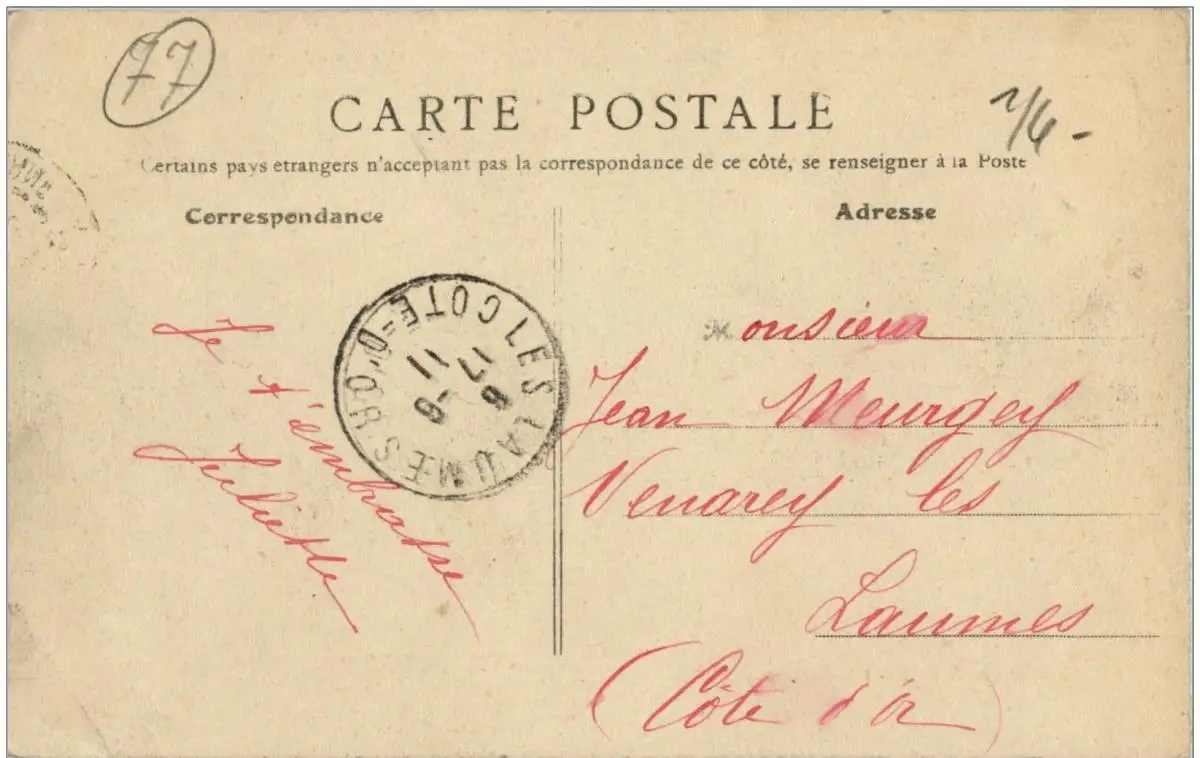 77
CARTE POSTALE
7/6 -
Certains pays etrangers n'acceptent pas la correspondance de ce côté, se renseigner à la Poste
Correspondance
Adresse
Je t'embrasse
Juliette
LES LAUMES CÔTE=D'OR
17
11 -9
Monsieur
Jean Meurgey
Venarey les
Laumes
(Côte d'Or)